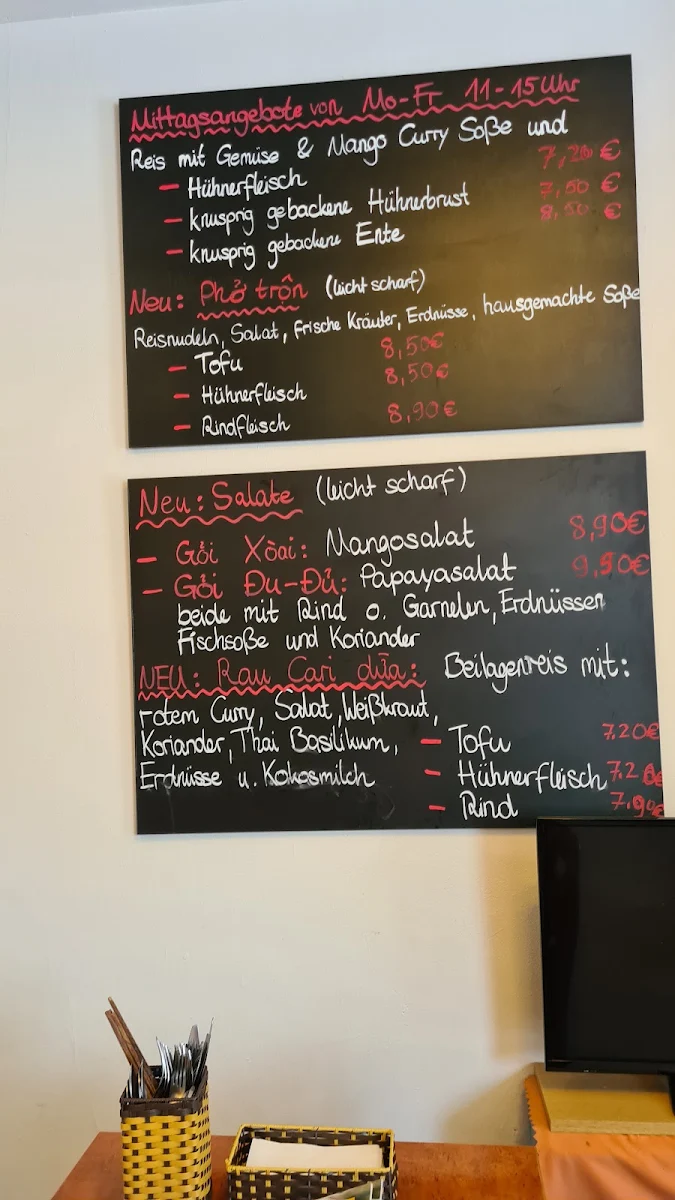 Mittagsangebote von Mo-Fr 11-15 Uhr
Reis mit Gemüse & Mango Curry Soße und
- Hühnerfleisch 7,20 €
- knusprig gebackene Hühnerbrust 7,50 €
- knusprig gebackene Ente 8,50 €
Neu: Phở trộn (leicht scharf)
Reisnudeln, Salat, frische Kräuter, Erdnüsse, hausgemachte Soße
- Tofu 8,50€
- Hühnerfleisch 8,50€
- Rindfleisch 8,90€
Neu: Salate (leicht scharf)
- Gỏi Xòai: Mangosalat 8,90€
- Gỏi Đu-Đủ: Papayasalat 9,50€
beide mit Rind o. Garnelen, Erdnüssen
Fischsoße und Koriander
NEU: Rau Cari dừa: Beilagenreis mit:
rotem Curry, Salat, Weißkraut,
Koriander, Thai Basilikum, - Tofu 7.20€
Erdnüsse u. Kokosmilch - Hühnerfleisch 7.20€
- Rind 7.90€